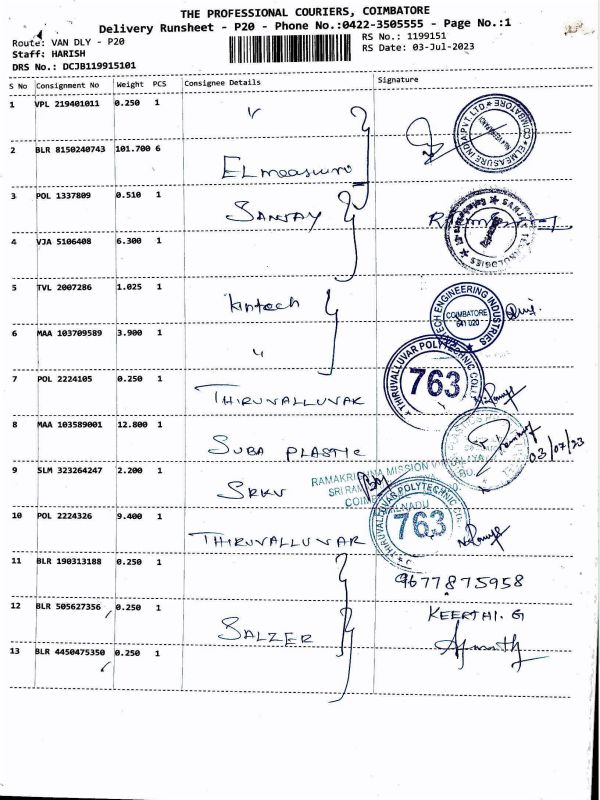 THE PROFESSIONAL COURIERS, COIMBATORE
Delivery Runsheet - P20 - Phone No.:0422-3505555 - Page No.:1
Route: VAN DLY - P20
RS No.: 1199151
Staff: HARISH
RS Date: 03-Jul-2023
DRS No.: DCJB119915101
S No Consignment No Weight PCS Consignee Details Signature
1 VPL 219401011 0.250 1 "
COIMBATORE ELMEASURE INDIA PVT. LTD
2 BLR 8150240743 101.700 6 ELmeasure
3 POL 1337809 0.510 1 SANJAY
SANJAY TECHNOLOGIES
4 VJA 5106408 6.300 1
5 TVL 2007286 1.025 1 Kintech
TECH ENGINEERING INDUSTRIES
COIMBATORE
641 020
6 MAA 103709589 3.900 1 "
THIRUVALLUVAR POLYTECHNIC COLL
763
7 POL 2224105 0.250 1 THIRUVALLUVAR
8 MAA 103589001 12.800 1 SUBA PLASTIC
03/07/23
9 SLM 323264247 2.200 1 SRKV
RAMAKRISHNA MISSION
SRI RAM
COIM
TAMILNADU
10 POL 2224326 9.400 1 THIRUVALLUVAR
THIRUVALLUVAR POLYTECHNIC COLL
763
11 BLR 190313188 0.250 1
9677875958
12 BLR 505627356 0.250 1 SALZER
KEERTHI. G
13 BLR 4450475350 0.250 1